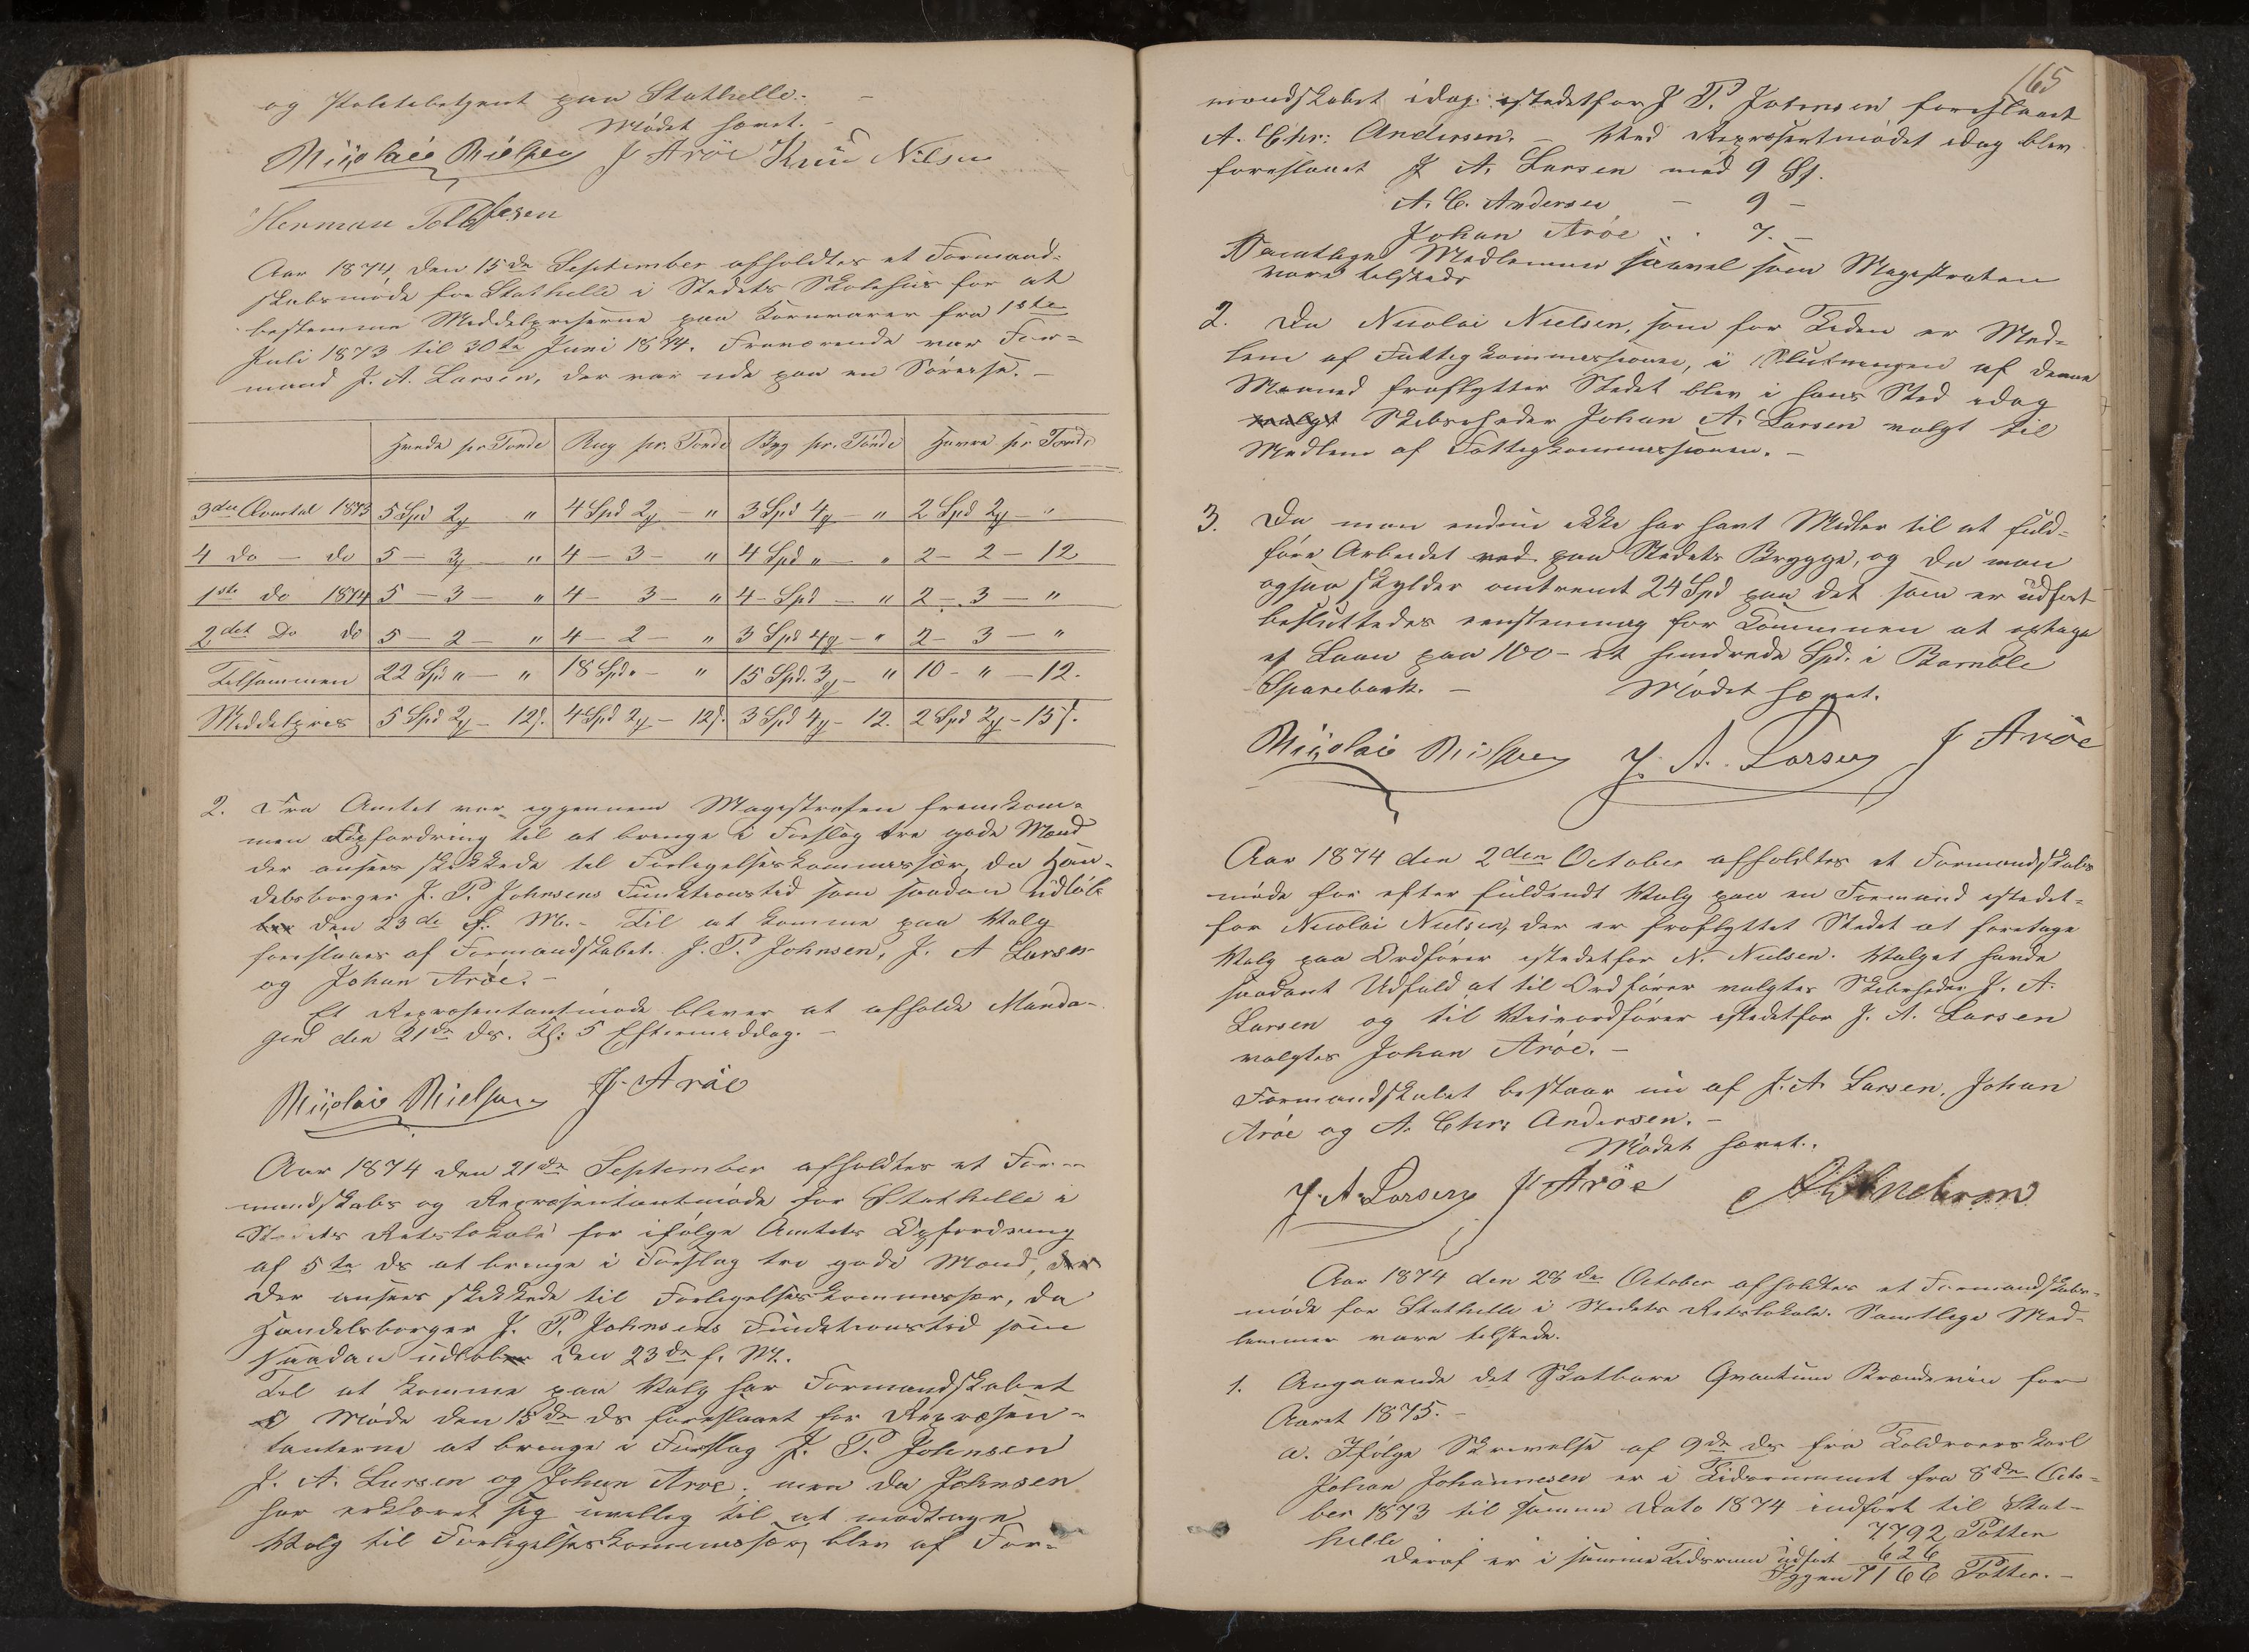 og Politibetjent paa Stathelle. –
Mødet hævet. –
Nicolai Nielsen J Aröe Knud Nilsen
Herman Tellefsen
Aar 1874 den 15de September afholdtes et Formand-
skabsmøde for Stathelle i Stedets Skolehus for at
bestemme Middelpriserne paa Kornvarer fra 1ste
Juli 1873 til 30te Juni 1874. Fraværende var For-
mand J. A. Larsen, der var ude paa en Söreise. –
Hvede pr Tönde Rug pr. Tönde Byg pr. Tönde Havre pr Tönde
3die Qvartal 1873 5 Spd 2 y " 4 Spd 2 y – " 3 Spd 4 y – " 2 Spd 2 y – "
4 do – do 5 – 3 y – " 4 – 3 – " 4 Spd " – " 2 – 2 – 12
1ste do 1874 5 – 3 – " 4 – 3 – " 4 – Spd – " 2 – 3 – "
2det Do do 5 – 2 – " 4 – 2 – " 3 Spd 4 y – " 2 – 3 – "
Tilsammen 22 Spd " – " 18 Spd " – " 15 Spd. 3 y – " 10 – " – 12.
Middelpris 5 Spd 2 y – 12 s. 4 Spd 2 y – 12 s. 3 Spd 4 y – 12. 2 Spd 2 y – 15 s.
2. Fra Amtet var igjennem Magistraten fremkom-
men Opfordring til at bringe i Forslag tre gode Mænd
der ansees skikkede til Forligelseskommissær, da Han-
delsborger J. P. Johnsens Funktionstid som saadan udlöb
den 23de f. M. – Til at komme paa Valg
foreslaaes af Formandskabet J. P. Johnsen, J. A Larsen
og Johan Aröe. –
Et Repræsentantmøde bliver at afholde Manda-
gen den 21de ds. Kl: 5 Eftermiddag. –
Nicolai Nielsen J. Aröe
Aar 1874 den 21de September afholdtes et For-
mandskabs og Repræsentantmøde for Stathelle i
Stedets Retslokale for ifølge Amtets Opfordring
af 5te ds at bringe i Forslag tre gode Mænd,
der ansees skikkede til Forligelseskommissær, da
Handelsborger J. P. Johnsens Funktionstid som
saadan udlöb den 23de f. M.
Til at komme paa Valg har Formandskabet
i Møde den 15de ds foreslaaet for Repræsen-
tanterne at bringe i Forslag J. P. Johnsen
J. A. Larsen og Johan Aröe; men da Johnsen
har erklæret sig uvillig til at modtage
Valg til Forligelseskommissær, blev af For-
165
mandskabet idag istedetfor J P. Johnsen foreslaaet
A. Chr: Andersen. – Ved Repræsentmødet idag blev
foreslaaet J A. Larsen med 9 St.
A. C. Andersen – 9 –
Johan Aröe . . 7. –
Samtlige Medlemmer saavel som Magistraten
vare tilstede
2. Da Nicolai Nielsen, som for Tiden er Med-
lem af Fattigkommissionen, i Slutningen af denne
Maaned fraflytter Stedet blev i hans Sted idag
valgt Skibsrheder Johan A. Larsen valgt til
Medlem af Fattigkommissionen. –
3. Da man endnu ikke har havt Midler til at fuld-
føre Arbeidet ved paa Stedets Brygge, og da man
ogsaa skylder omtrent 24 Spd paa det som er udført
besluttedes eenstemmig for Kommunen at optage
et Laan paa 100 – et hundrede Spd. i Bamble
Sparebank. – Mødet hævet.
Nicolai Nielsen J. A. Larsen J Aröe
Aar 1874 den 2den October afholdtes et Formandskabs
møde for efter fuldendt Valg paa en Formand istedet-
for Nicolai Nielsen, der er fraflyttet Stedet at foretage
Valg paa Ordfører istedetfor N. Nielsen. Valget havde
saadant Udfald at til Ordfører valgtes Skibsrheder J. A.
Larsen og til Viceordfører istedetfor J. A. Larsen
valgtes Johan Aröe. –
Formandskabet bestaar nu af J. A. Larsen, Johan
Aröe og A. Chr: Andersen. –
Mødet hævet.
J. A. Larsen J Aröe
Aar 1874 den 28de October afholdtes et Formandskabs-
møde for Stathelle i Stedets Retslokale. Samtlige Med-
lemmer vare tilstede.
1. Angaaende det Skatbare Qvantum Brændeviin for
Aaret 1875. –
a. Ifølge Skrivelse af 9de ds fra Toldroerskarl
Johan Johannesen er i Tidsrummet fra 8de Octo-
ber 1873 til samme Dato 1874 indført til Stat-
helle 7792 Potter
Deraf er i samme Tidsrum udført 626
Igjen 7166 Potter. –